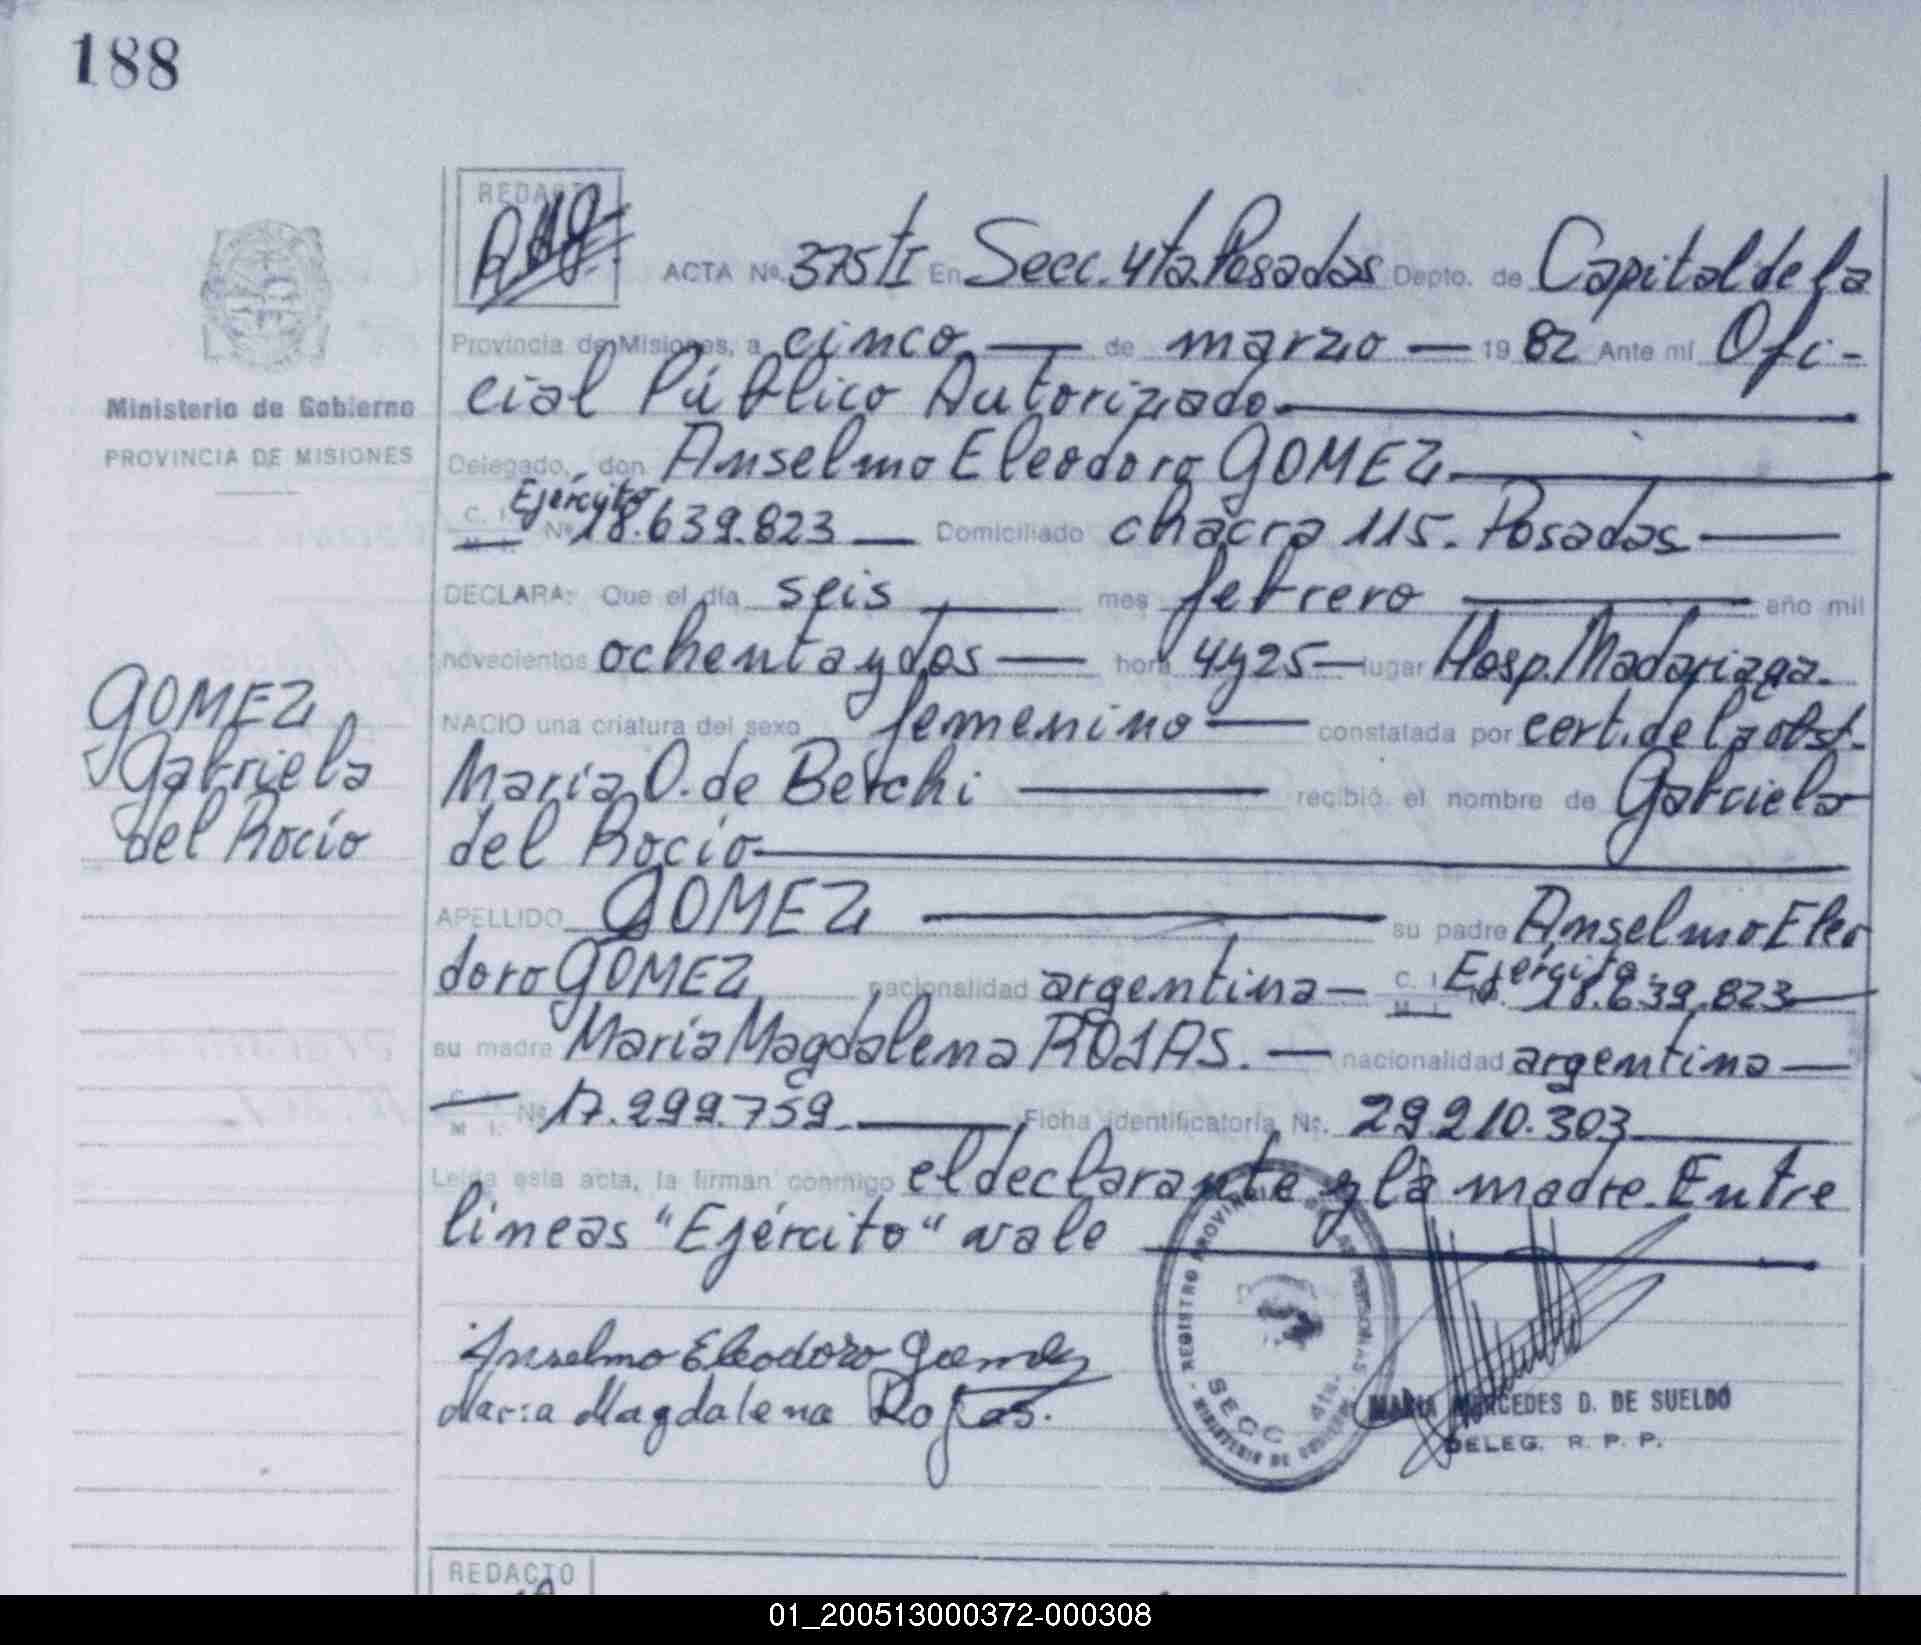 188
REDACTO
ACTA Nº. 375 tI En Secc. 4ta. Posadas Depto. de Capital de la
Provincia de Misiones, a cinco — de marzo — 19 82 Ante mí Ofi-
cial Público Autorizado.
Ministerio de Gobierno
PROVINCIA DE MISIONES
Delegado, don Anselmo Eleodoro GOMEZ
Ejército
C. I. M. I. Nº 18.639.823 — Domiciliado chacra 115. Posadas —
DECLARA: Que el día seis — mes febrero — año mil
novecientos ochenta y dos — hora 4y25 — lugar Hosp. Madariaga.
NACIO una criatura del sexo femenino — constatada por cert. de la obst.
GOMEZ
Gabriela
del Rocío
María O. de Berchi — recibió el nombre de Gabriela
del Rocío
APELLIDO GOMEZ — su padre Anselmo Eleo
doro GOMEZ nacionalidad argentina — C. I. M. I. Ejército. 18.639.823
su madre María Magdalena ROJAS. — nacionalidad argentina —
M. I. Nº 17.299.759 — Ficha identificatoria Nº. 29.210.303
Leída esta acta, la firman conmigo el declarante y la madre. Entre
lineas "Ejército" vale
Anselmo Eleodoro Gomez
Maria Magdalena Rojas.
REGISTRO PROVINCIAL DE LAS PERSONAS
SECC 4ta.
MINISTERIO DE GOBIERNO
MARIA MERCEDES D. DE SUELDO
DELEG. R. P. P.
REDACTO
01_200513000372-000308